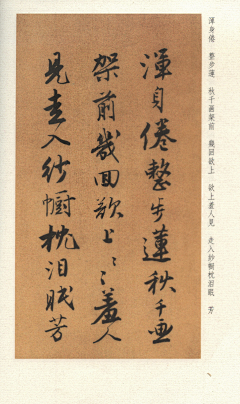 渾身倦 整步蓮 秋千画架前 幾回欲上 欲上羞人見 走入紗幮枕泪眠 芳
渾身倦整步蓮秋千画
架前幾回欲上〻〻羞人
見走入紗幮枕泪眠芳